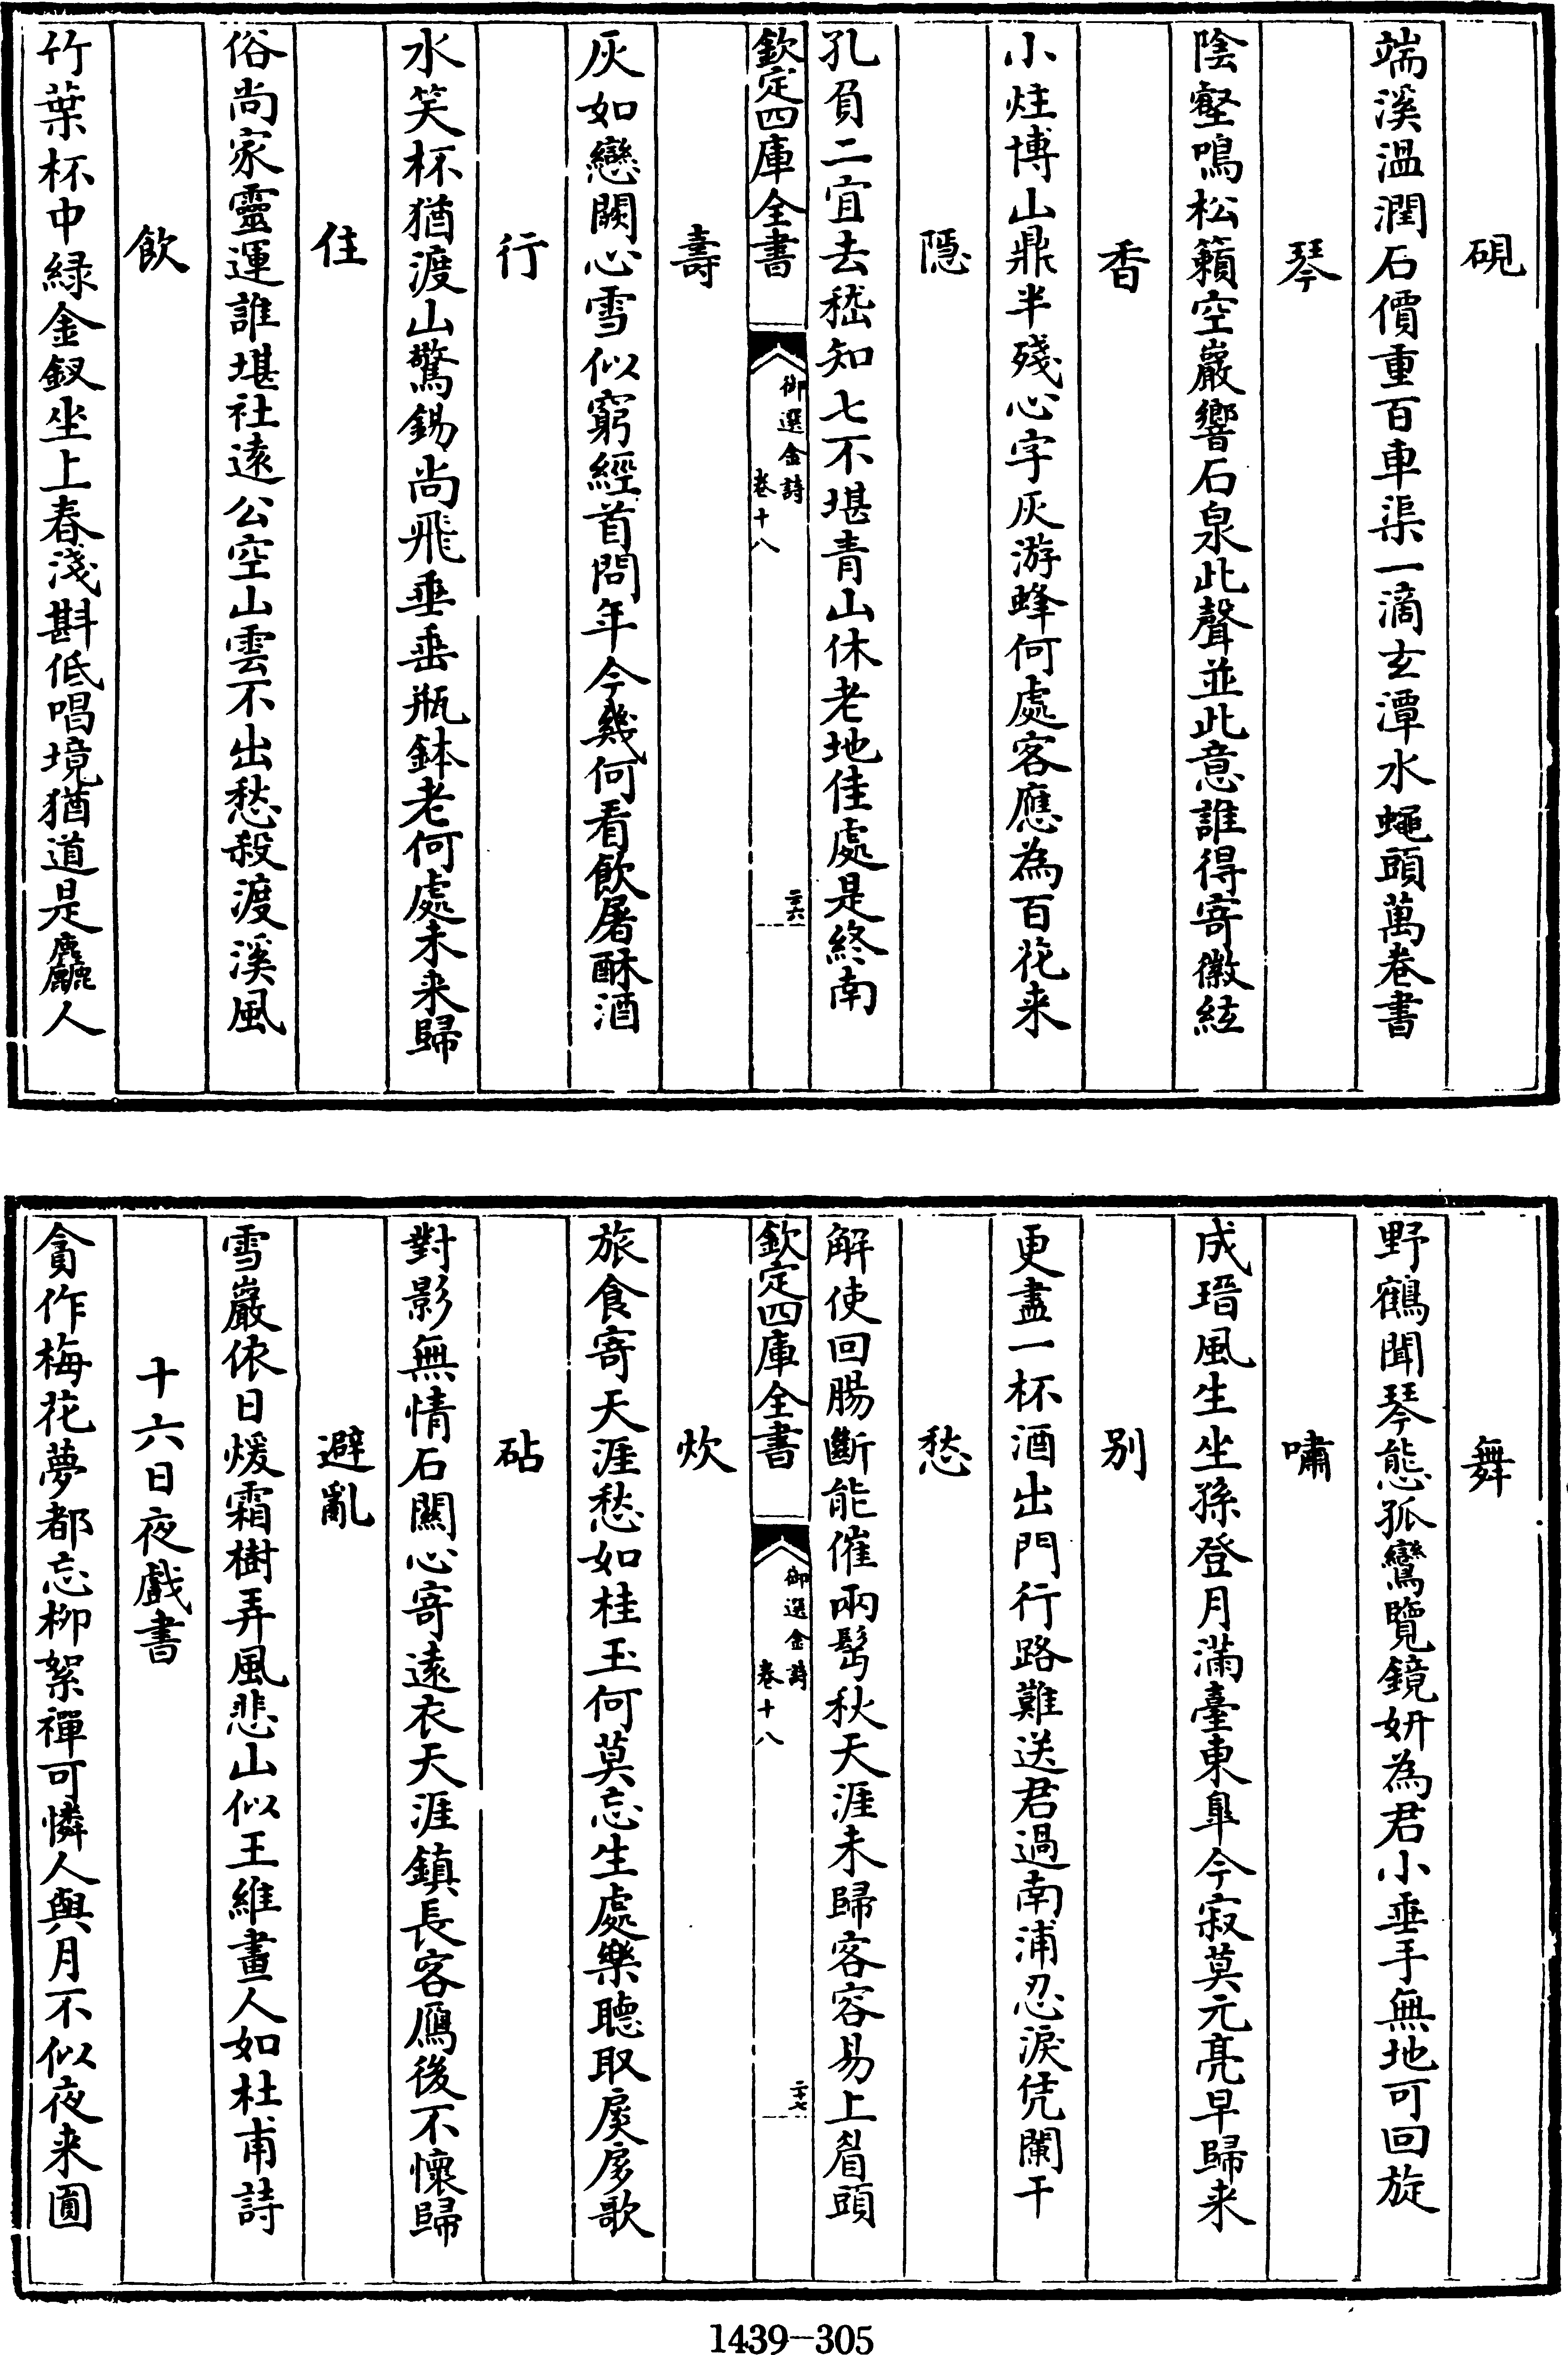 硯
端溪溫潤石價重百車渠一滴玄潭水蠅頭萬卷書
琴
陰壑鳴松籟空巖響石泉此聲並此意誰得寄徽絃
香
小炷博山鼎半殘心字灰游蜂何處客應為百花来
隱
孔負二宜去嵇知七不堪青山休老地佳處是終南
欽定四庫全書
御選金詩
卷十八
二十六
壽
灰如戀闕心雪似窮經首問年今幾何看飲屠酥酒
行
水笑杯猶渡山驚錫尚飛垂垂瓶鉢老何處未来歸
住
俗尚家靈運誰堪社遠公空山雲不出愁殺渡溪風
飲
竹葉杯中緑金釵坐上春淺斟低唱境猶道是麤人
舞
野鶴聞琴態孤鸞覽鏡妍為君小垂手無地可回旋
嘯
成瑨風生坐孫登月滿臺東臯今寂莫元亮早歸来
别
更盡一杯酒出門行路難送君過南浦忍淚凭闌干
愁
解使回腸斷能催兩髩秋天涯未歸客容易上眉頭
欽定四庫全書
御選金詩
卷十八
二十七
炊
旅食寄天涯愁如桂玉何莫忘生處樂聽取扊扅歌
砧
對影無情石關心寄遠衣天涯鎮長客鴈後不懷歸
避亂
雪巖依日煖霜樹弄風悲山似王維畫人如杜甫詩
十六日夜戲書
貪作梅花夢都忘柳絮禪可憐人與月不似夜来圓
1439-305